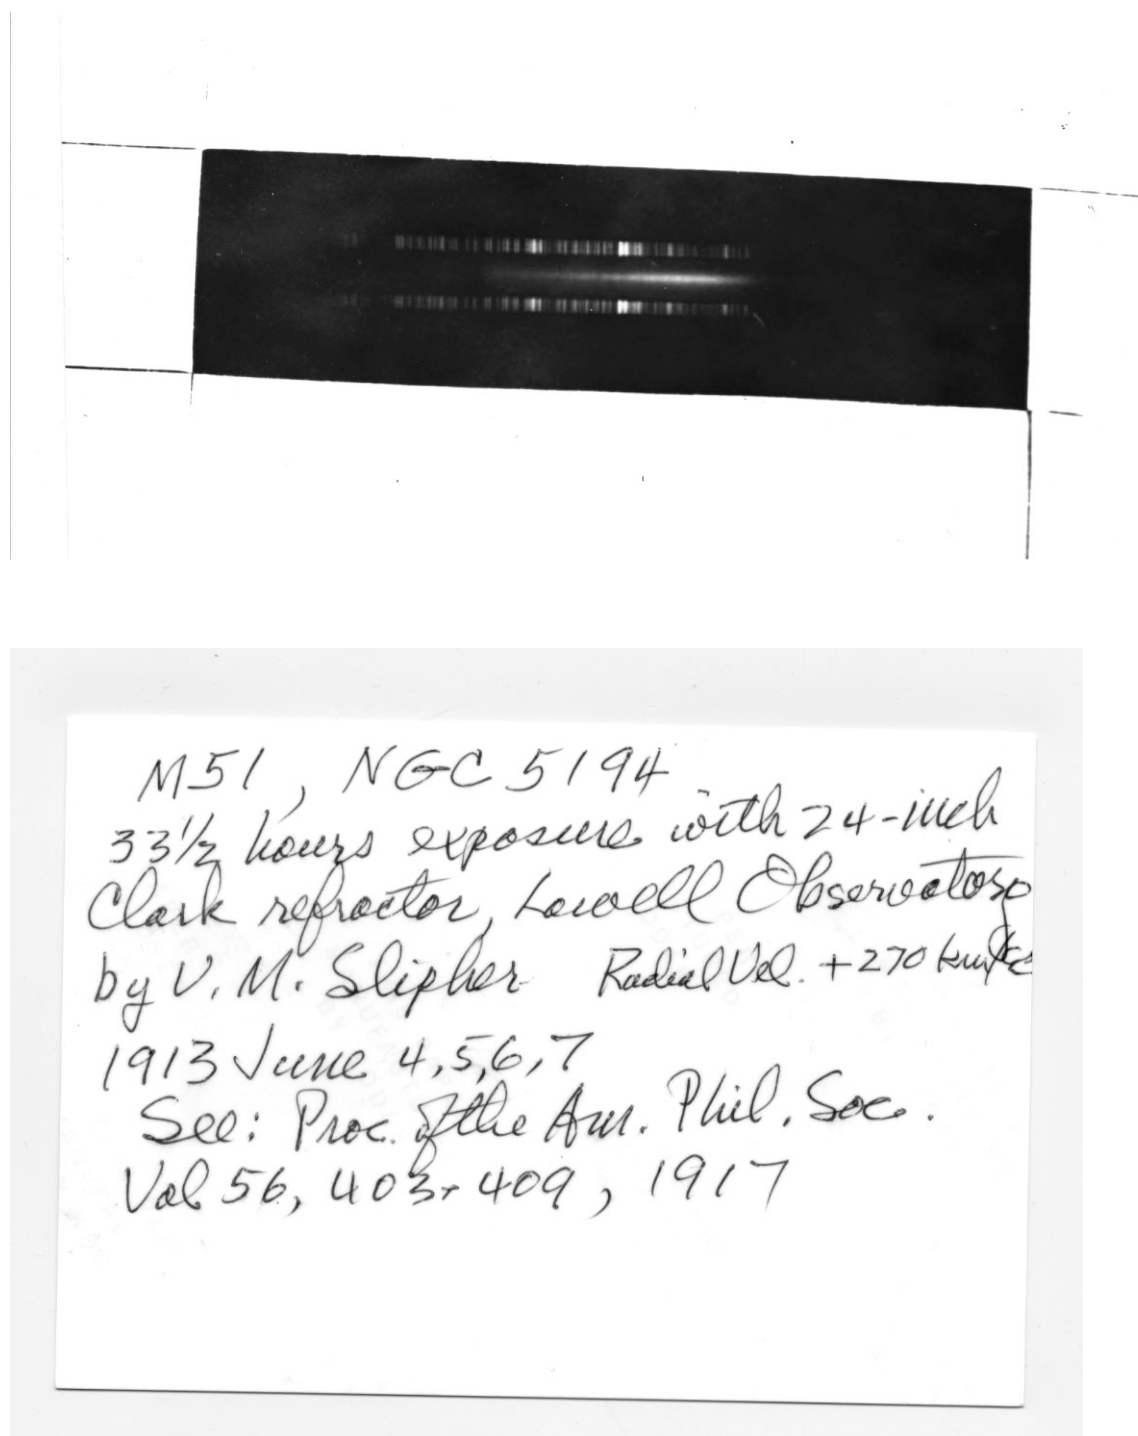 M51, NGC 5194
33½ hours exposure with 24-inch
Clark refractor, Lowell Observatory
by V. M. Slipher Radial Vel. +270 km/sec
1913 June 4,5,6,7
See: Proc. of the Am. Phil. Soc.
Vol 56, 403-409, 1917